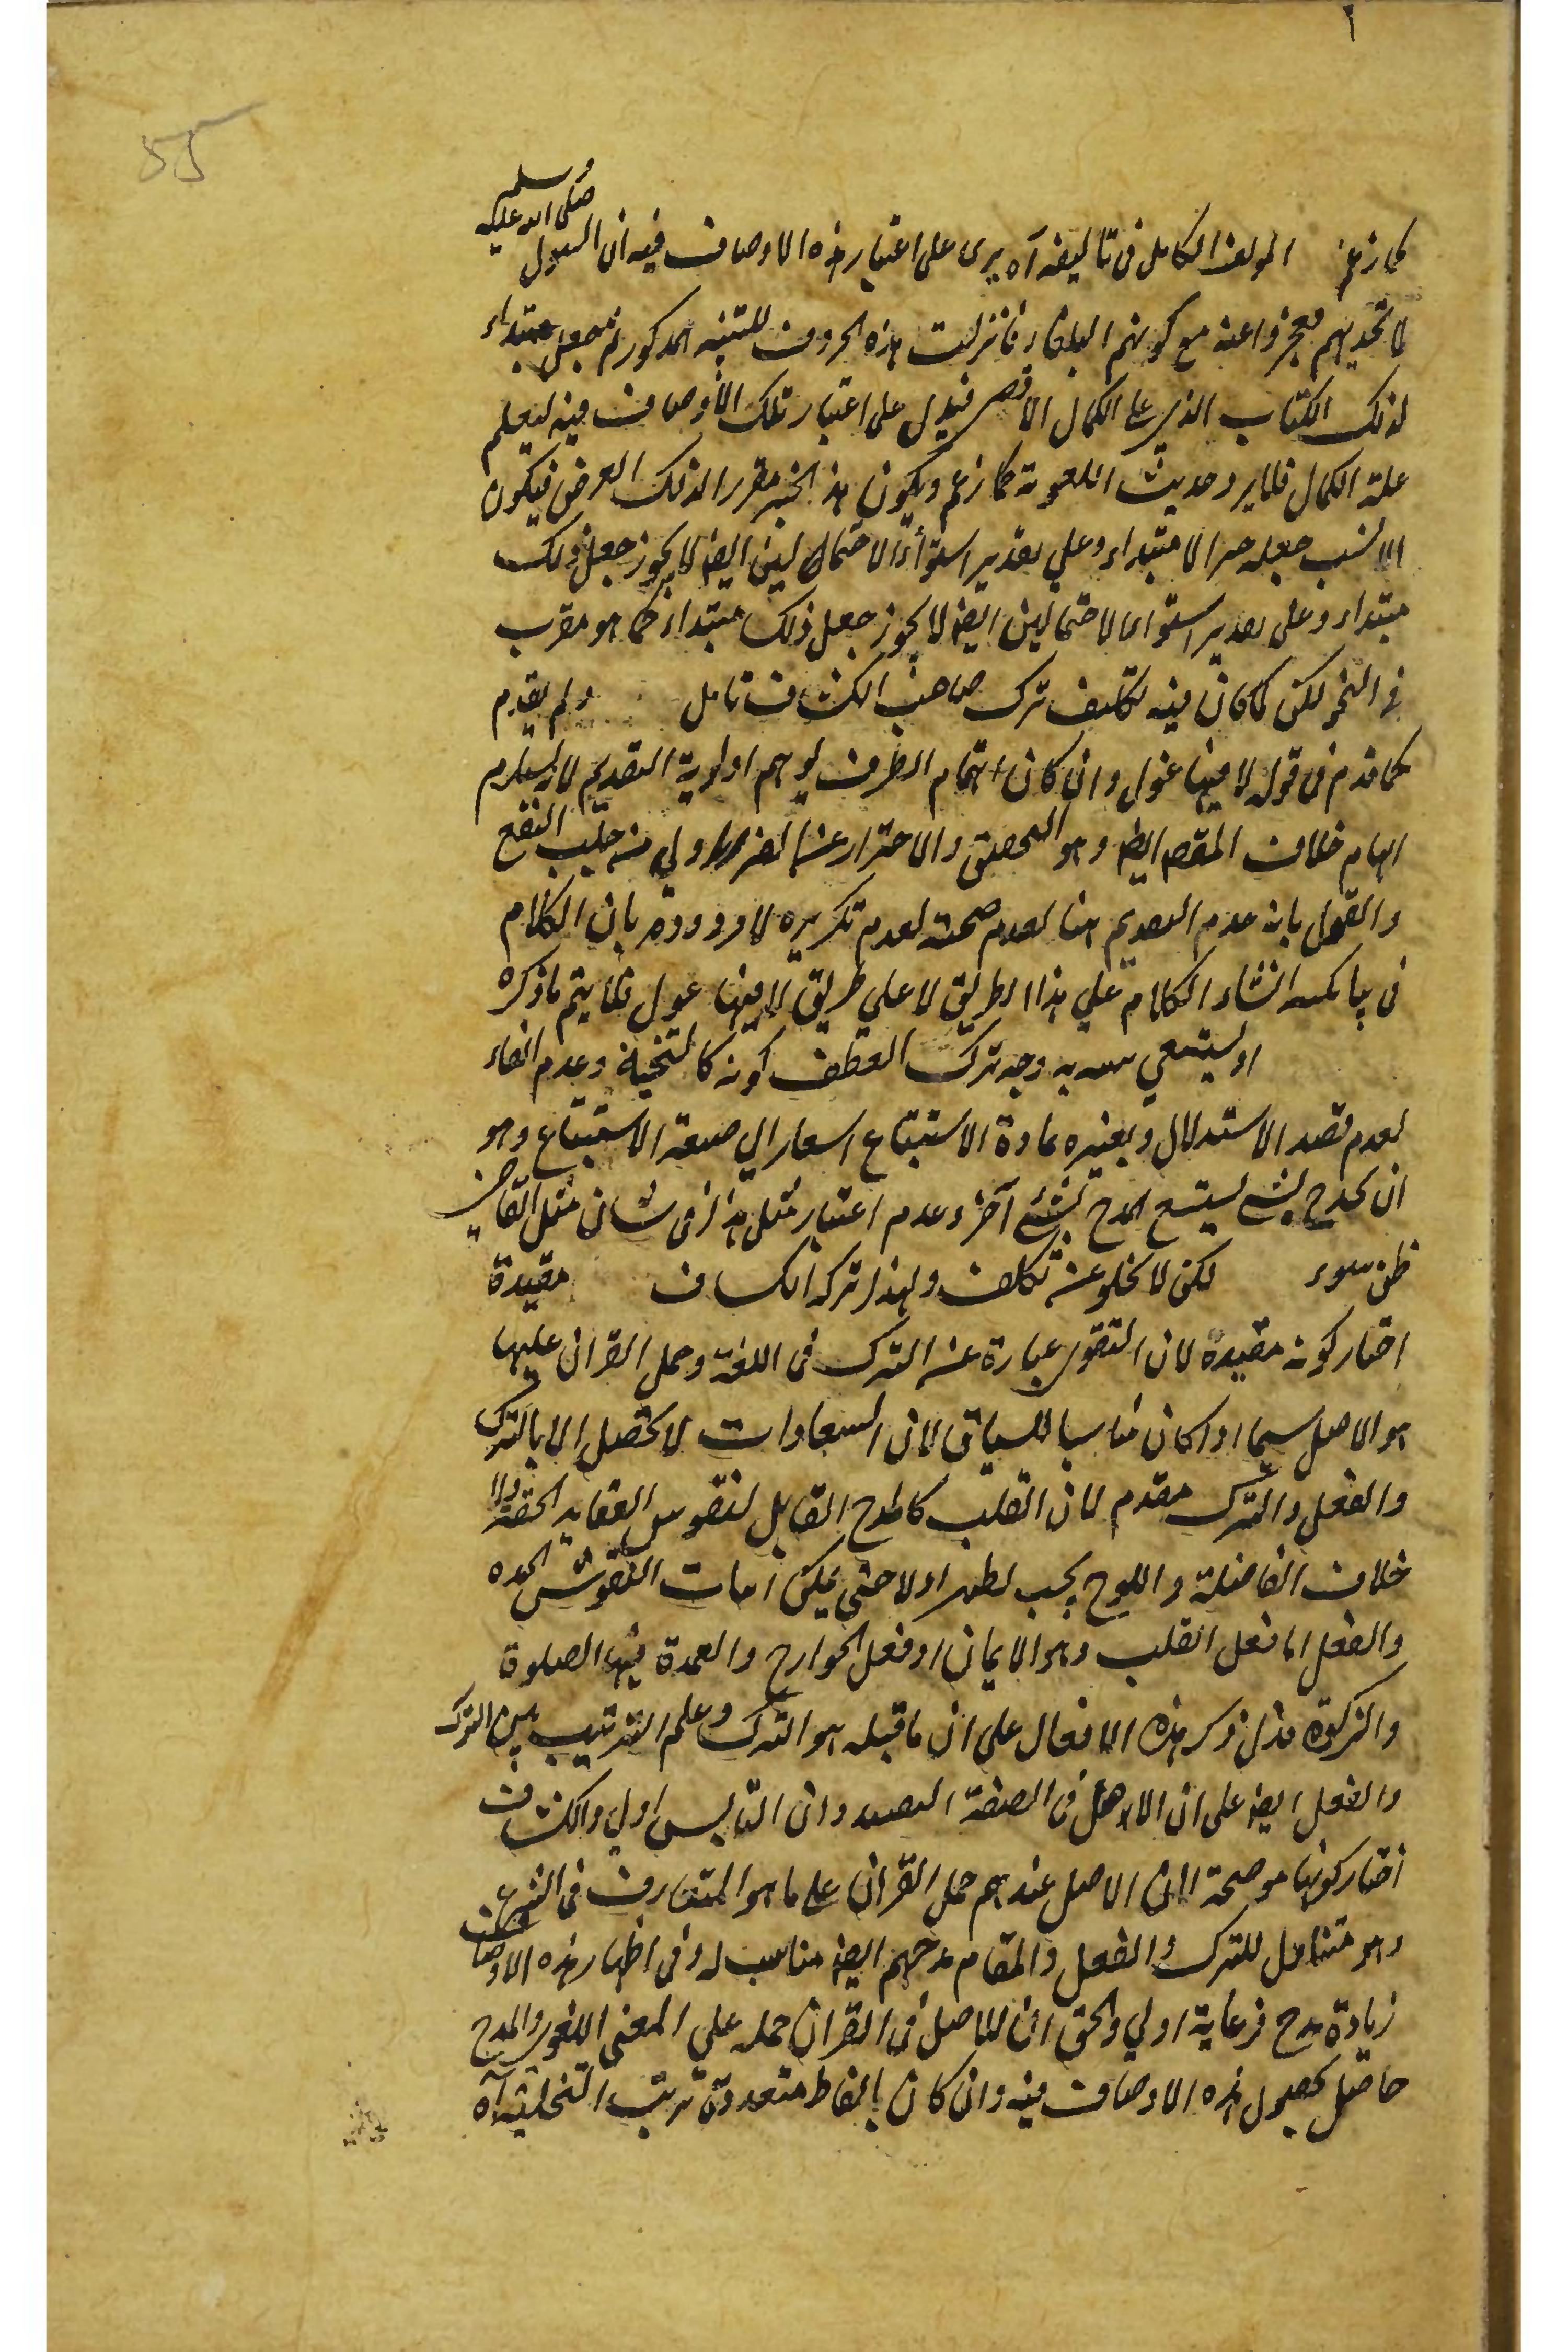 55
وسلم
صلى الله عليه
كما زعم المولف الكامل فى تاليفه آه يرى على اعتبار هذه الاوصاف فيه ان الرسول
لما تحديهم فعجزوا عنه مع كونهم البلغاء فانزلت هذه الحروف للتنبه المذكور ثم جعل مبتداء
لذلك الكتاب الذى على الكمال الاقصى فيدل على اعتبار تلك الاوصاف فيه ليعلم
علة الكمال فلا يرد حديث اللغوية كما زعم ويكون هذا الخبر مقررا لذلك الغرض فيكون
الانسب جعله خبر الا مبتداء وعلي تقدير استواء الاحتمالين ايضا لا يجوز جعل ذلك
مبتداء وعلى تقدير استواء الاحتمالين ايضا لا يجوز جعل ذلك مبتداء كما هو مقرر
فى النحو لكن لما كان فيه تكلف ترك صاحب الكشاف تامل ولم يقدم
كما قدم فى قوله لا فيها غول وان كان اهتمام الظرف يوهم اولوية التقديم لانه يستلزم
ايهام خلاف المقصود ايضا وهو التحصيص والاحتراز عن الضرر اولى من جلب النفع
والقول بان عدم التقديم هنا لعدم صحته لعدم تكريره لا وردود بان الكلام
فى انشاء الكلام علي هذا الطريق لا علي طريق لا فيها غول فلا يتم ما ذكره
او يستتبع وجه ترك العطف كونه كالنتيجة وعدم الفاء
لعدم قصد الاستدلال وبغيره عادة الاستتباع اشعارا الي صنعة الاستتباع وهو
ان يمدح بشئ يستتبع المدح بشئ آخر وعدم اعتبار مثل هذا فى شان مثل القاضى
ظن سوء لكن لا يخلو عن تكلف ولهذا تركه الكشاف مقيدة
اختار كونه مقيدة لان التقوى عبارة عن الترك فى اللغة وحمل القران عليها
هو الاصل سيما اذا كان مناسبا للسياق لان السعادات لا تحصل الا بالترك
والفعل والترك مقدم لان القلب كاللوح القابل لنقوش العقايد الحقة والا
خلاف الفاضلة واللوح يجب تطهير اولا حتى يمكن اثبات النقوش الجيده
والفعل اما فعل القلب وهو الايمان او فعل الجوارح والعمدة فيها الصلوة
والزكوة فدل ذكر هذه الافعال على ان ما قبله هو الترك وعلم الترتيب بين الترك
والفعل ايضا على ان الاصل فى الصفة التقييد وان التاسيس اولى والكشاف
اختار كونها موضحة لان الاصل عندهم حمل القران على ما هو المتعارف فى الشرع
وهو متناول للترك والفعل والمقام مدحهم ايضا مناسب له وفى اظهار هذه الاوصاف
زيادة مدح فرعاية اولي والحق ان الاصل فى القران حمله علي المعنى اللغوى والمدح
حاصل بحصول هذه الاوصاف فيه وان كان بالفاظ متعددة ترتب التخلية آه